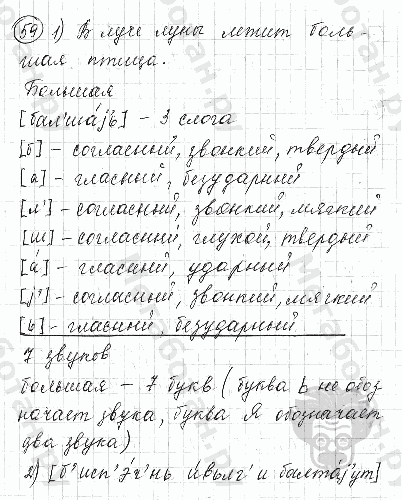 59 1) В луче луны летит боль-
шая птица.
Большая
[бал'шáj'ь] – 3 слога
[б] – согласный, звонкий, твердый
[а] – гласный, безударный
[л'] – согласный, звонкий, мягкий
[ш] – согласный, глухой, твердый
[á] – гласный, ударный
[j'] – согласный, звонкий, мягкий
[ь] – гласный, безударный
7 звуков
большая – 7 букв (буква ь не обоз
начает звука, буква Я обозначает
два звука)
2) [б'исп'э́ч'нь и́выlг'и балтáj'ут]